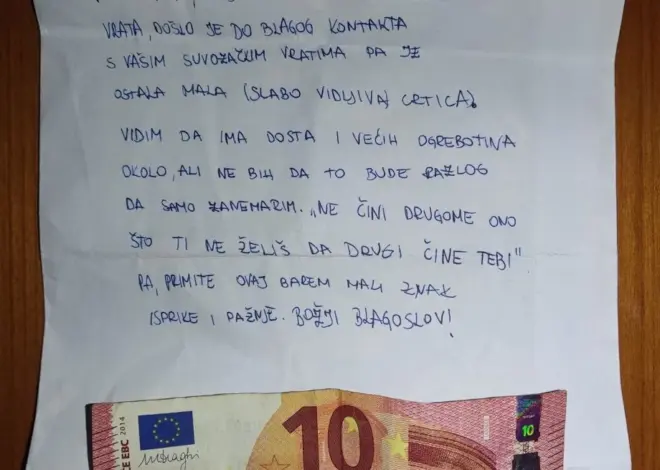 VRATA, DOŠLO JE DO BLAGOG KONTAKTA
S VAŠIM SUVOZAČKIM VRATIMA PA JE
OSTALA MALA (SLABO VIDLJIVA) CRTICA).
VIDIM DA IMA DOSTA I VEĆIH OGREBOTINA
OKOLO, ALI NE BIH DA TO BUDE RAZLOG
DA SAMO ZANEMARIM. „NE ČINI DRUGOME ONO
ŠTO TI NE ŽELIŠ DA DRUGI ČINE TEBI"
PA, PRIMITE OVAJ BAREM MALI ZNAK
ISPRIKE I PAŽNJE. BOŽJI BLAGOSLOV!
10
10
CE EBC 2014